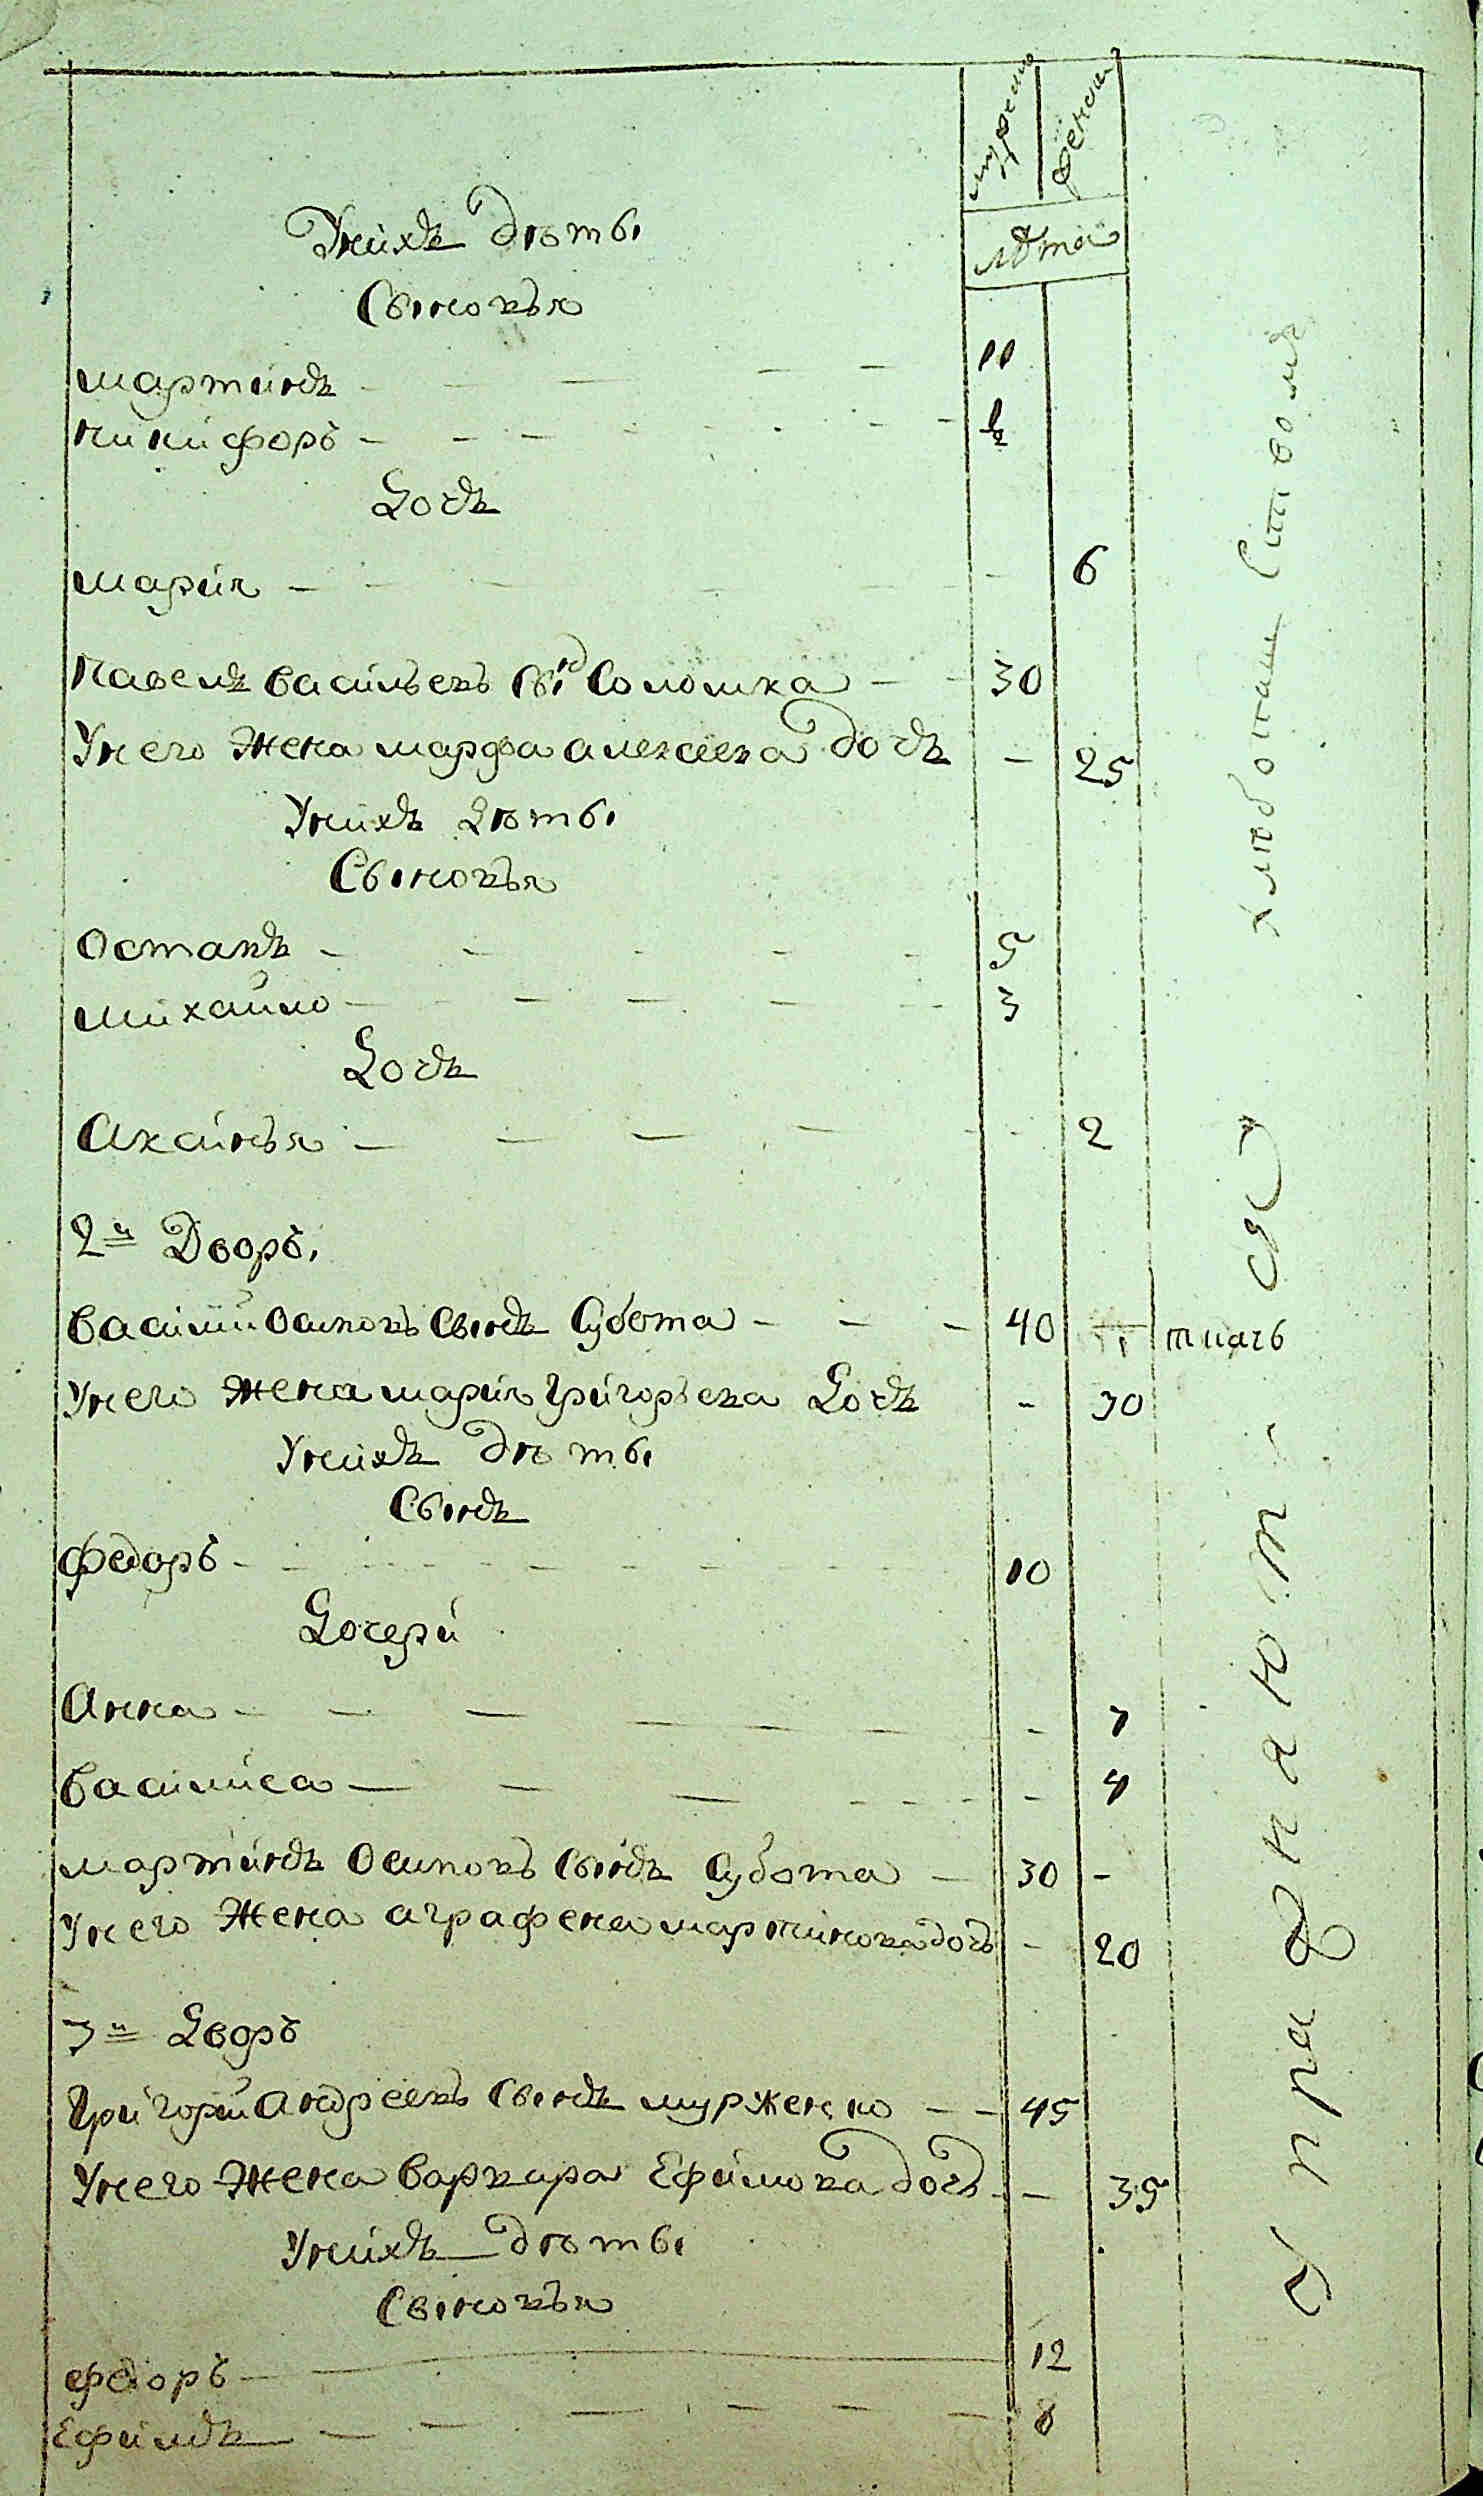 мужеска
женска
лѣта
Унихъ дѣти
Сыновья
мартинъ 11
никифоръ ½
Дочь
марія 6
Павелъ Васильевъ сынъ Соломка 30
Унего жена марфа алексеева дочь 25
Унихъ Дѣти
Сыновья
Остапъ 5
михайло 3
Дочь
Аксинья 2
2й Дворъ,
Василий Осиповъ сынъ Субота 40 ткачь
Унего жена марія григорьева Дочь 30
Унихъ дѣти
Сынъ
федоръ 10
Дочери
Анна 7
Василиса 4
мартинъ Осиповъ сынъ Субота 30
Унего жена аграфена мартинова дочь 20
3й Дворъ
Григорий андреевъ сынъ мурженко 45
Унего жена варвара Ефимова дочь 35
Унихъ дѣти
Сыновья
федоръ 12
Ефимъ 8
упражняют-ся хлѣбопашством